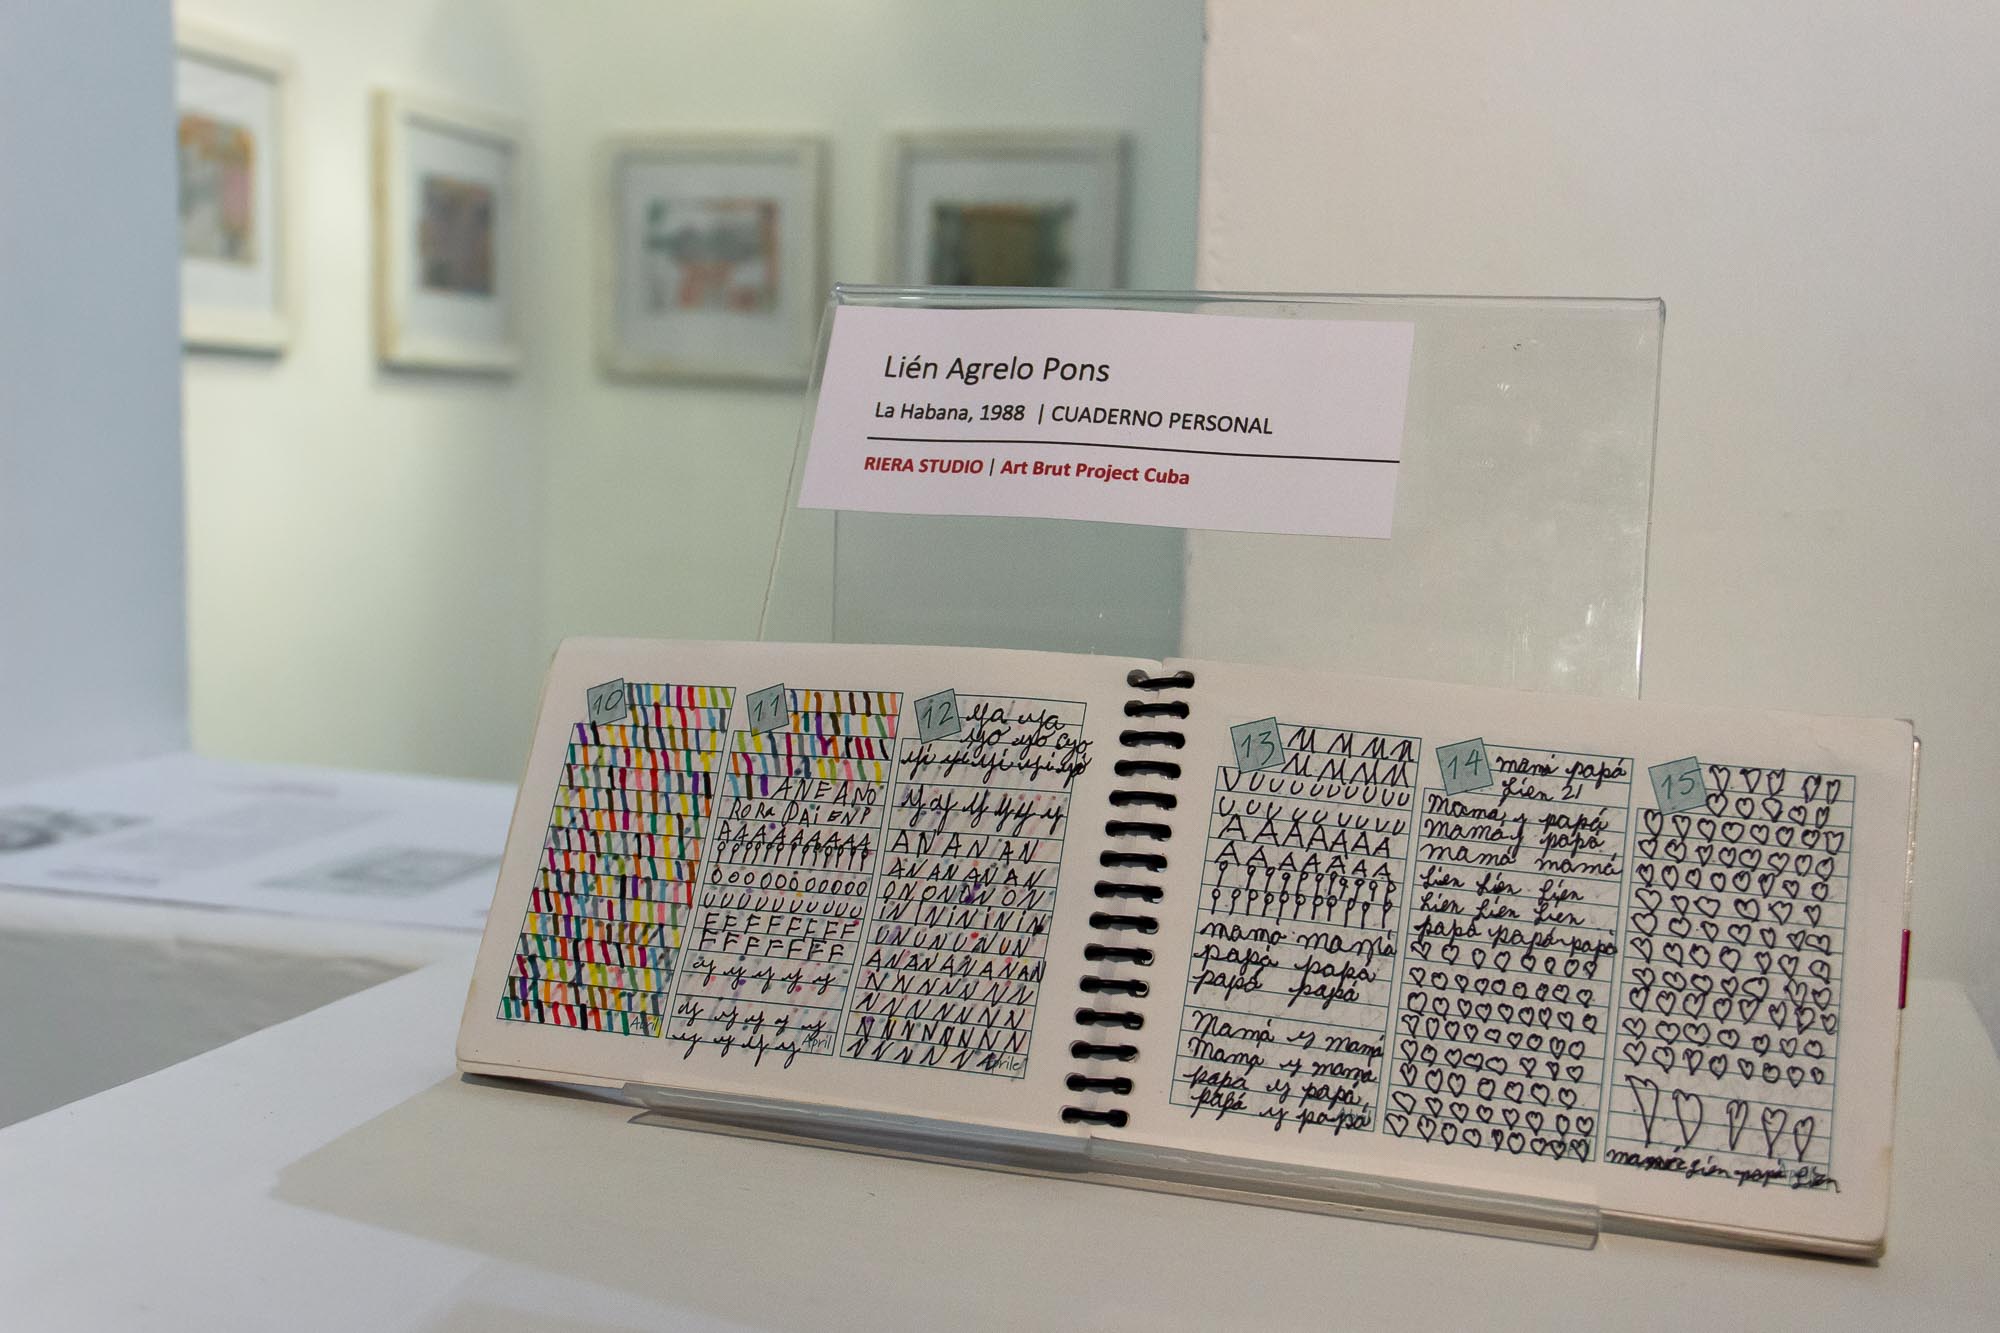 Lién Agrelo Pons
La Habana, 1988 | CUADERNO PERSONAL
RIERA STUDIO | Art Brut Project Cuba
10
Abril
11
ANEANO
RORA DAiENP
AAAAAAAAAA
OOOOOOOOOOO
UUUUUUUUUU
FFFFFFF
FFFFFFF
y y y y y
y y y y y
y y y y
April
12
ya ya
yo yo yo
yi yi yi yi yi
y y y y y y
AN AN AN
AN AN AN AN
ON ON ON ON
iN iN iN iN iN
UN UN UN UN
AN AN AN AN AN
NNNNNNN
NNNNNNN
NNNNNNN
NNNNN
Aprile
13
M M M M
M M M M
UUUUUUUUU
UUUUUUUU
AAAAAAA
AAAAAAA
mamá mamá
papá papá
papá papá
Mamá y mamá
Mamá y mamá
papá y papá
papá y papá
14
mamá papá
Lien 21
Mamá y papá
Mamá y papá
mamá mamá
Lien Lien Lien
Lien Lien Lien
papá papá papá
15
mamá Lién papá Lién